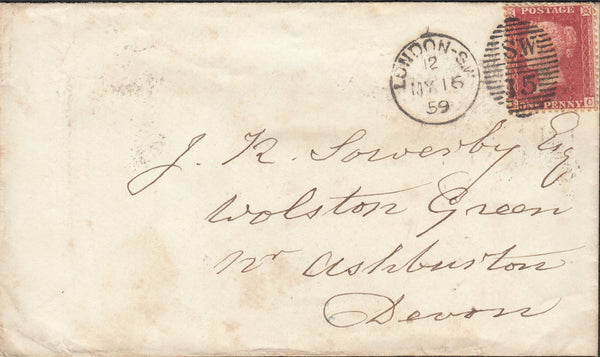 POSTAGE
LONDON-S.W
12
MY 16
59
SW
15
ONE PENNY
G
J. R. Sowerby Esq
Wolston Green
Nr Ashburton
Devon